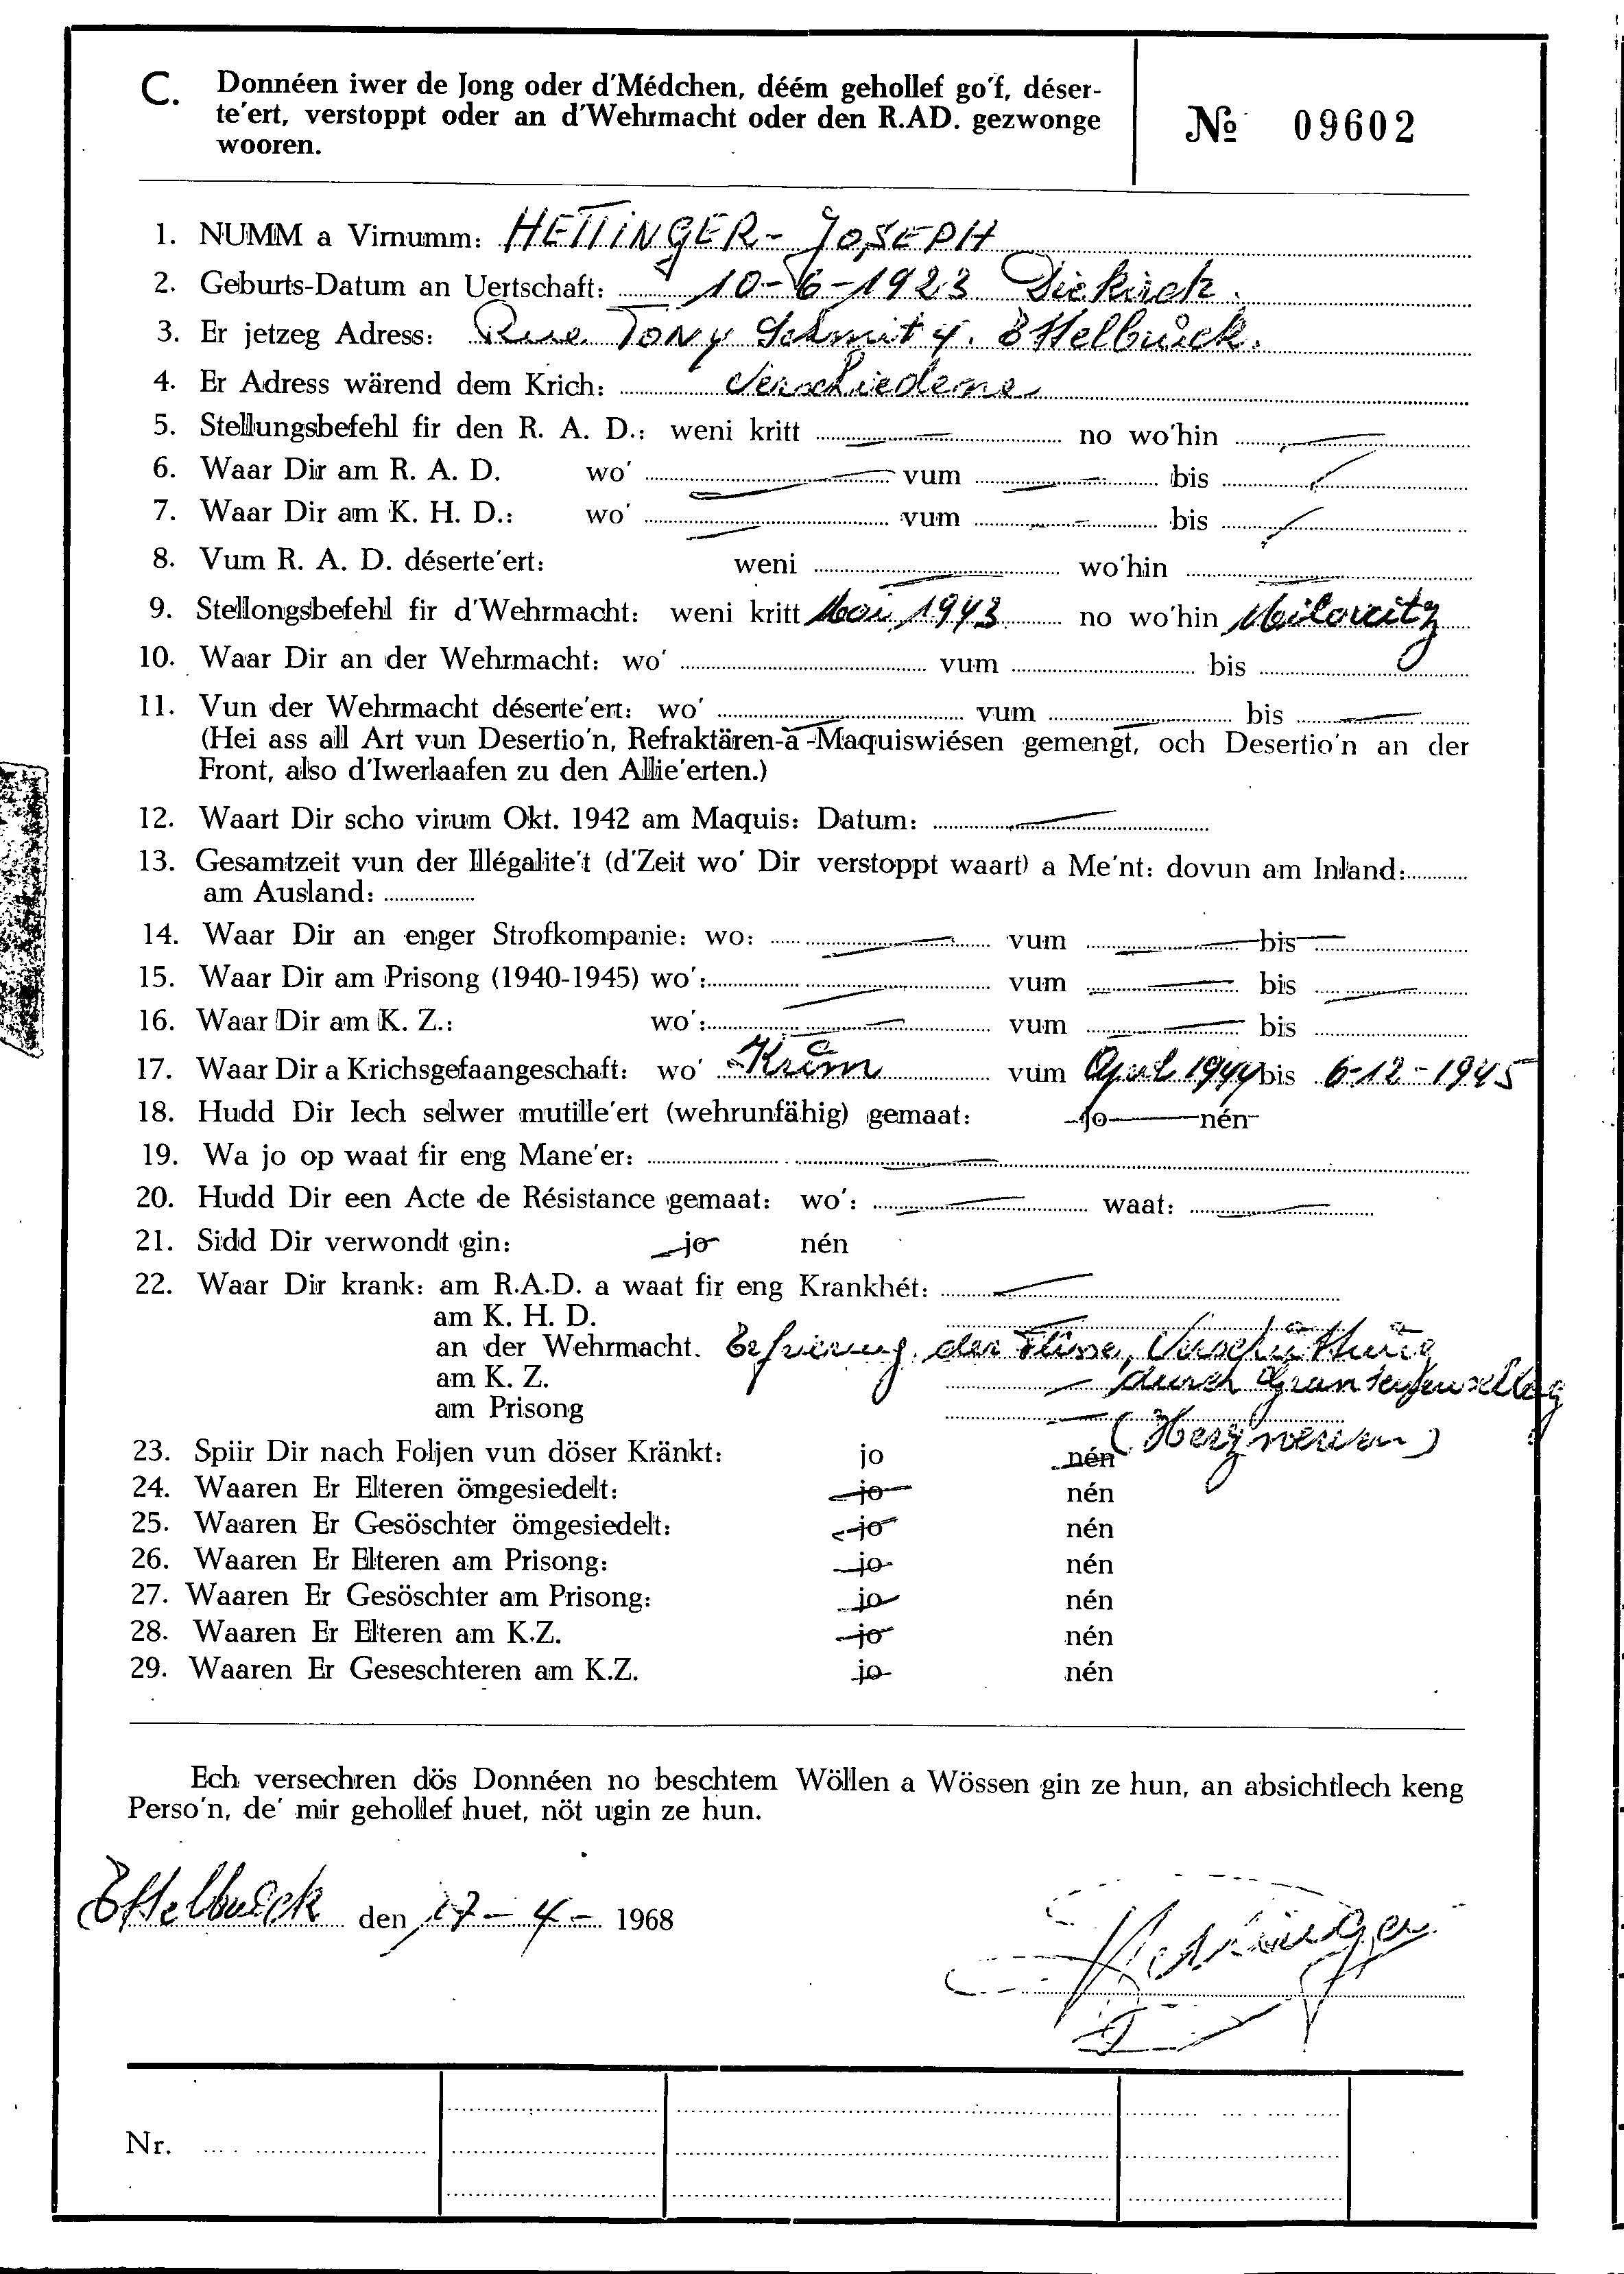 C. Donnéen iwer de Jong oder d'Médchen, déém gehollef go'f, déser-
te'ert, verstoppt oder an d'Wehrmacht oder den R.AD. gezwonge
wooren.
№ 09602
1. NUMM a Virnumm: HETTINGER - JOSEPH
2. Geburts-Datum an Uertschaft: 10-6-1923 Diekirch.
3. Er jetzeg Adress: Rue Tony Schmit 4. Ettelbrück.
4. Er Adress wärend dem Krich: Verschiedene
5. Stellungsbefehl fir den R. A. D.: weni kritt — no wo'hin —
6. Waar Dir am R. A. D. wo' — vum — bis —
7. Waar Dir am K. H. D.: wo' — vum — bis —
8. Vum R. A. D. déserte'ert: weni — wo'hin —
9. Stellongsbefehl fir d'Wehrmacht: weni kritt Mai 1943 no wo'hin Milowitz
10. Waar Dir an der Wehrmacht: wo' vum bis
11. Vun der Wehrmacht déserte'ert: wo' — vum — bis —
(Hei ass all Art vun Desertio'n, Refraktären-a-Maquiswiésen gemengt, och Desertio'n an der
Front, also d'Iwerlaafen zu den Allie'erten.)
12. Waart Dir scho virum Okt. 1942 am Maquis: Datum: —
13. Gesamtzeit vun der Illégalite't (d'Zeit wo' Dir verstoppt waart) a Me'nt: dovun am Inland:
am Ausland:
14. Waar Dir an enger Strofkompanie: wo: — vum — bis —
15. Waar Dir am Prisong (1940-1945) wo': — vum — bis —
16. Waar Dir am K. Z.: wo': — vum — bis
17. Waar Dir a Krichsgefaangeschaft: wo' Krim vum April 1944 bis 6-12-1945
18. Hudd Dir Iech selwer mutille'ert (wehrunfähig) gemaat: jo nén
19. Wa jo op waat fir eng Mane'er: —
20. Hudd Dir een Acte de Résistance gemaat: wo': — waat: —
21. Sidd Dir verwondt gin: jo nén
22. Waar Dir krank: am R.A.D. a waat fir eng Krankhét: —
am K. H. D. —
an der Wehrmacht. der Füsse, Verschüttung
am K. Z. — durch
am Prison​g — (Herznerven)
23. Spiir Dir nach Foljen vun döser Kränkt: jo nén
24. Waaren Er Elteren ömgesiedelt: jo nén
25. Waaren Er Gesöschter ömgesiedelt: jo nén
26. Waaren Er Elteren am Prisong: jo nén
27. Waaren Er Gesöschter am Prisong: jo nén
28. Waaren Er Elteren am K.Z. jo nén
29. Waaren Er Geseschteren am K.Z. jo nén
Ech versechren dös Donnéen no beschtem Wöllen a Wössen gin ze hun, an absichtlech keng
Perso'n, de' mir gehollef huet, nöt ugin ze hun.
Ettelbrück den 17-4- 1968
Hettinger
Nr.